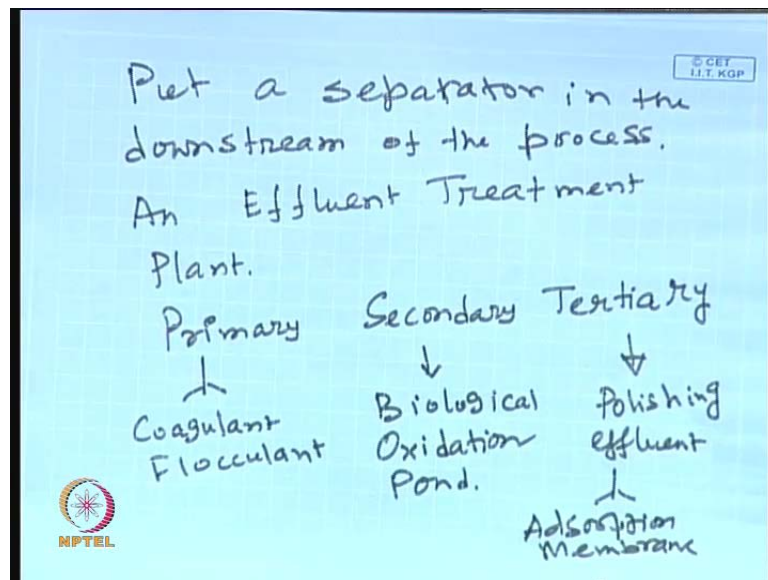 © CET
I.I.T. KGP
Put a separator in the
downstream of the process.
An Effluent Treatment
Plant.
Primary Secondary Tertiary
Coagulant
Flocculant
Biological
Oxidation
Pond.
Polishing
effluent
Adsorption
Membrane
NPTEL